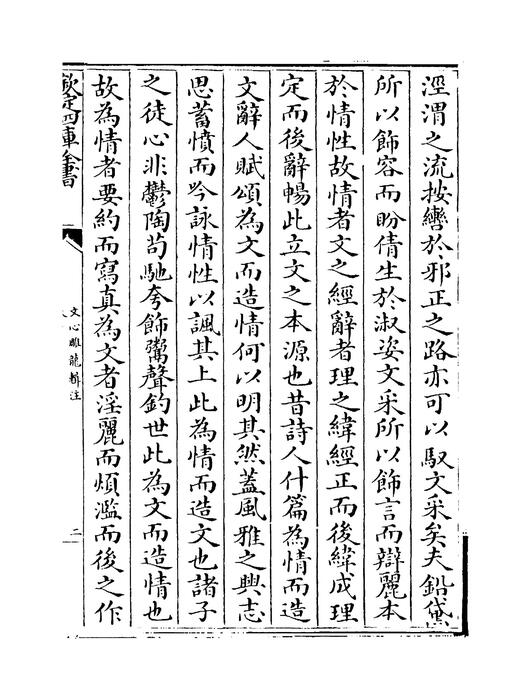 涇渭之流按轡於邪正之路亦可以馭文采矣夫鉛黛
所以飾容而盼倩生於淑姿文采所以飾言而辯麗本
於情性故情者文之經辭者理之緯經正而後緯成理
定而後辭暢此立文之本源也昔詩人什篇為情而造
文辭人賦頌為文而造情何以明其然蓋風雅之興志
思蓄憤而吟詠情性以諷其上此為情而造文也諸子
之徒心非鬱陶苟馳夸飾鬻聲釣世此為文而造情也
故為情者要約而寫真為文者淫麗而煩濫而後之作
欽定四庫全書
文心雕龍輯注
二